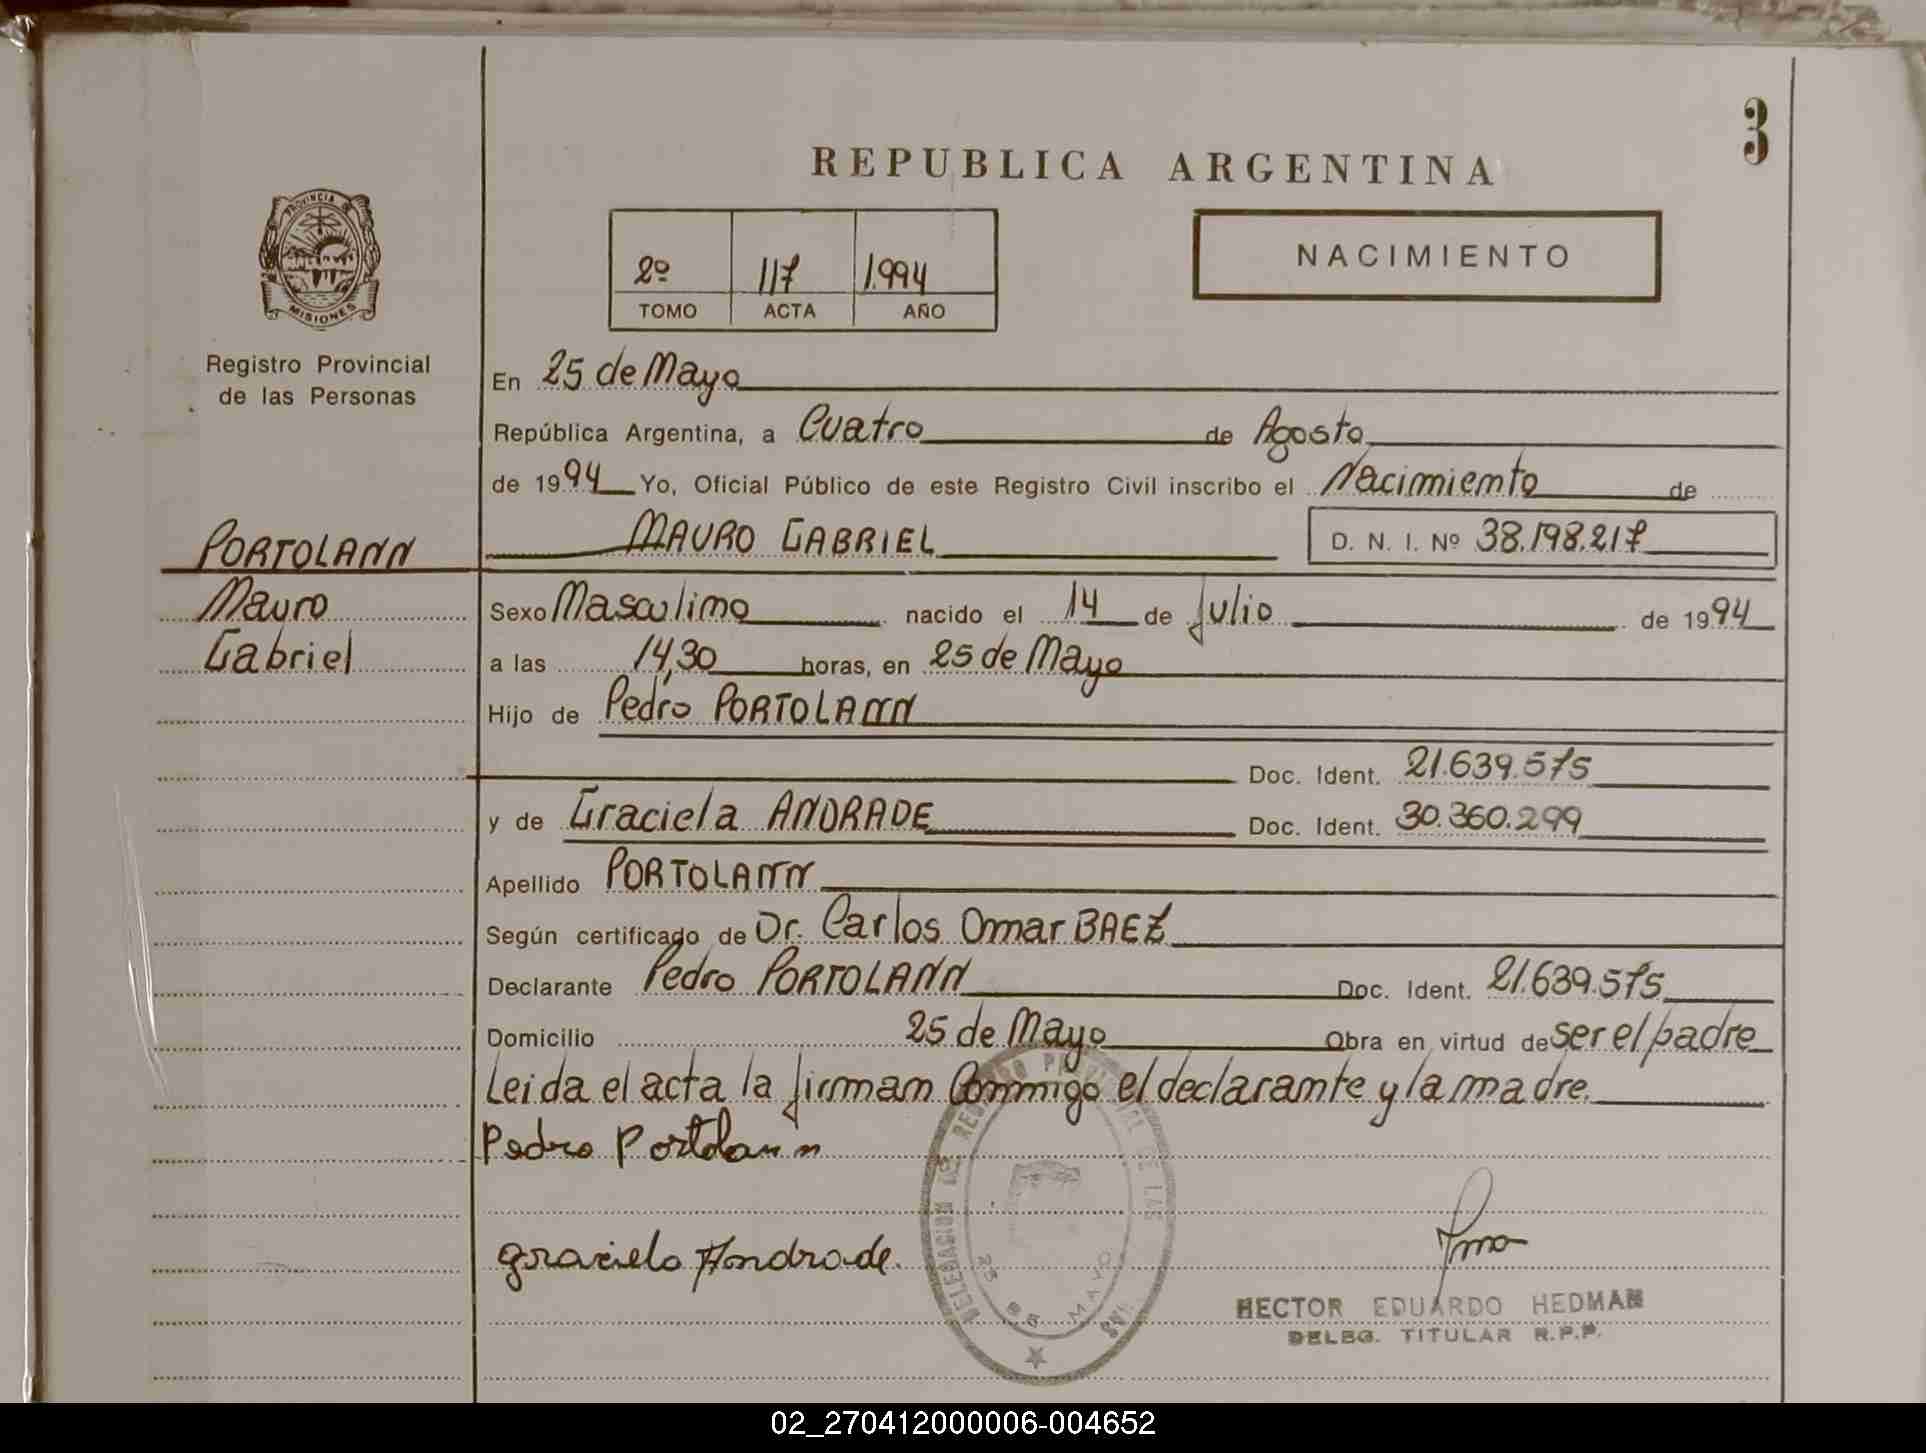 3
REPUBLICA ARGENTINA
PROVINCIA DE
MISIONES
Registro Provincial
de las Personas
2º 117 1.994
TOMO ACTA AÑO
NACIMIENTO
En 25 de Mayo
República Argentina, a Cuatro de Agosto
de 1994 Yo, Oficial Público de este Registro Civil inscribo el Nacimiento de
PORTOLANN MAURO GABRIEL D. N. I. Nº 38.198.217
Mauro Sexo Masculino nacido el 14 de Julio de 1994
Gabriel a las 14,30 horas, en 25 de Mayo
Hijo de Pedro PORTOLANN
Doc. Ident. 21.639.575
y de Graciela ANDRADE Doc. Ident. 30.360.299
Apellido PORTOLANN
Según certificado de Dr. Carlos Omar BAEZ
Declarante Pedro PORTOLANN Doc. Ident. 21.639.575
Domicilio 25 de Mayo Obra en virtud de ser el padre
Leida el acta la firman Conmigo el declarante y la madre.
Pedro Portolann
Graciela Andrade.
25 DE MAYO
HECTOR EDUARDO HEDMAN
DELEG. TITULAR R.P.P.
02_270412000006-004652